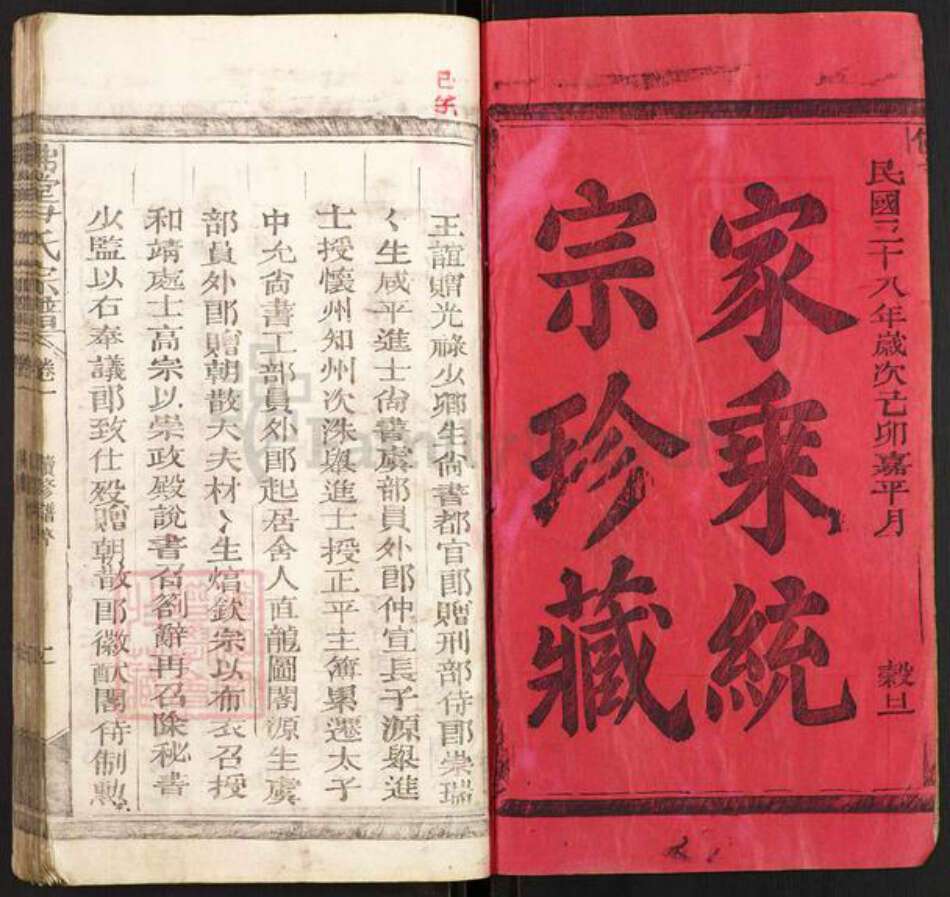 民國二十八年歲次己卯嘉平月 穀旦
家乘統
宗珍藏
王誼贈光祿少卿生尙書都官郎贈刑部侍郎崇瑞
〻生咸平進士尙書虞部員外郎仲宣長子源舉進
士授懷州知州次洙舉進士授正平主簿累遷太子
中允尙書工部員外郎起居舍人直龍圖閣源生虞
部員外郎贈朝散大夫材〻生焞欽宗以布衣召授
和靖處士高宗以崇政殿說書召劄辭再召除秘書
少監以右奉議郎致仕歿贈朝散郎徽猷閣待制勲
尹氏宗譜 卷一